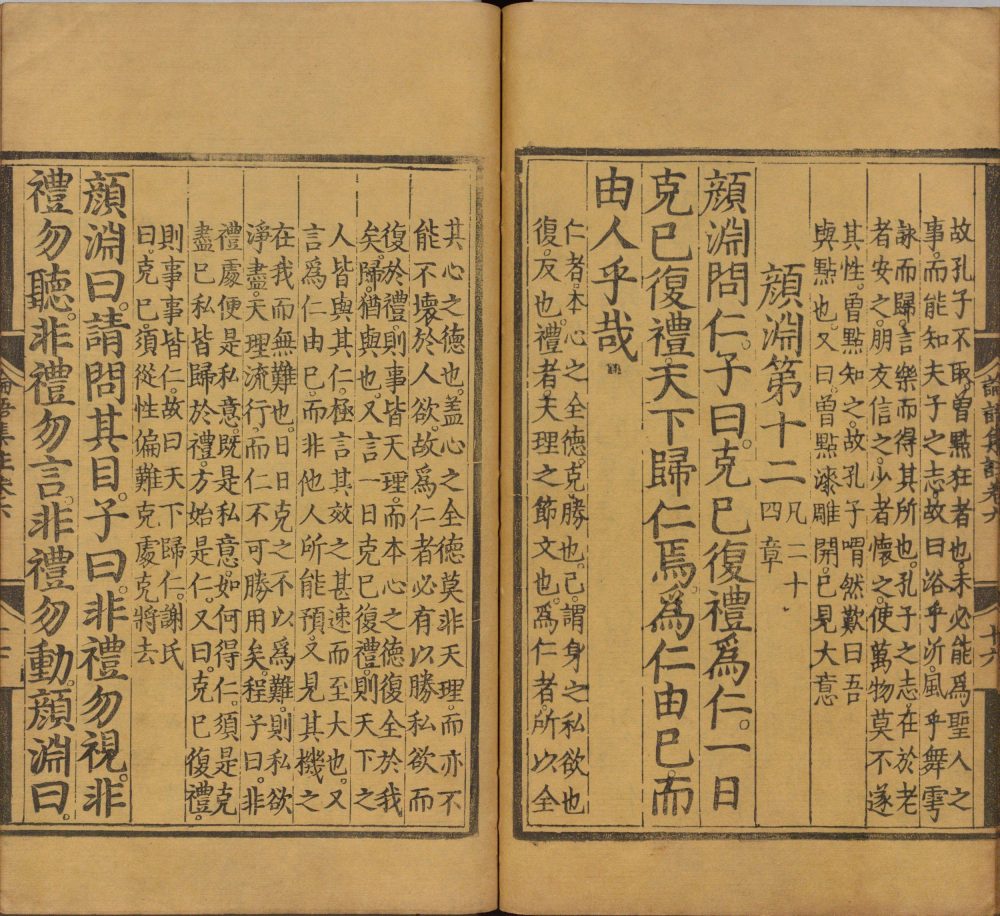 論語集註卷六
十六
故孔子不取。曾點狂者也。未必能爲聖人之
事。而能知夫子之志。故曰浴乎沂。風乎舞雩
詠而歸。言樂而得其所也。孔子之志。在於老
者安之。朋友信之。少者懷之。使萬物莫不遂
其性。曾點知之。故孔子喟然歎曰吾
與點也。又曰。曾點漆雕開。已見大意
顔淵第十二
凡二十
四章
顔淵問仁。子曰。克已復禮爲仁。一日
克已復禮。天下歸仁焉。爲仁由已。而
由人乎哉
仁者。本心之全德。克。勝也。己。謂身之私欲也
復。反也。禮者。天理之節文也。爲仁者。所以全
其心之德也。蓋心之全德莫非天理。而亦不
能不壞於人欲。故爲仁者必有以勝私欲而
復於禮。則事皆天理。而本心之德復全於我
矣。歸。猶與也。又言一日克已復禮。則天下之
人皆與其仁。極言其效之甚速而至大也。又
言爲仁由已。而非他人所能預。又見其機之
在我而無難也。日日克之不以爲難。則私欲
淨盡。天理流行。而仁不可勝用矣。程子曰。非
禮處便是私意。既是私意。如何得仁。須是克
盡已私皆歸於禮。方始是仁。又曰。克已復禮。
則事事皆仁。故曰天下歸仁。謝氏
曰。克已。須從性偏難克處克將去
顔淵曰。請問其目。子曰。非禮勿視。非
禮勿聽。非禮勿言。非禮勿動。顔淵曰。
論語集註卷六